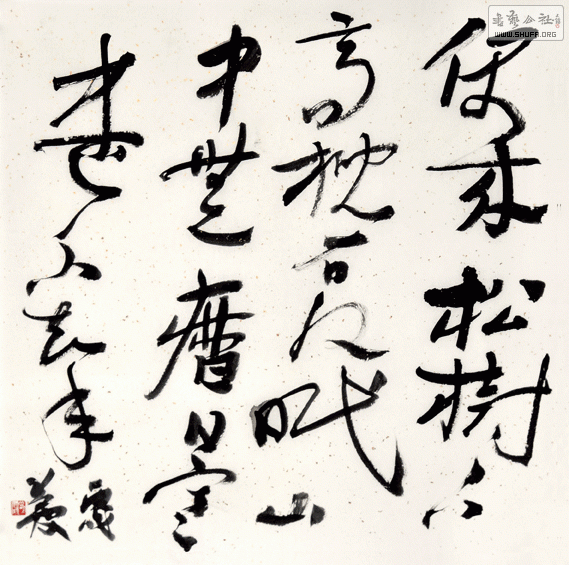 偶来松樹下
高枕石頭眠山
中無曆日寒
盡不知年
书艺公社
WWW.SHUFA.ORG